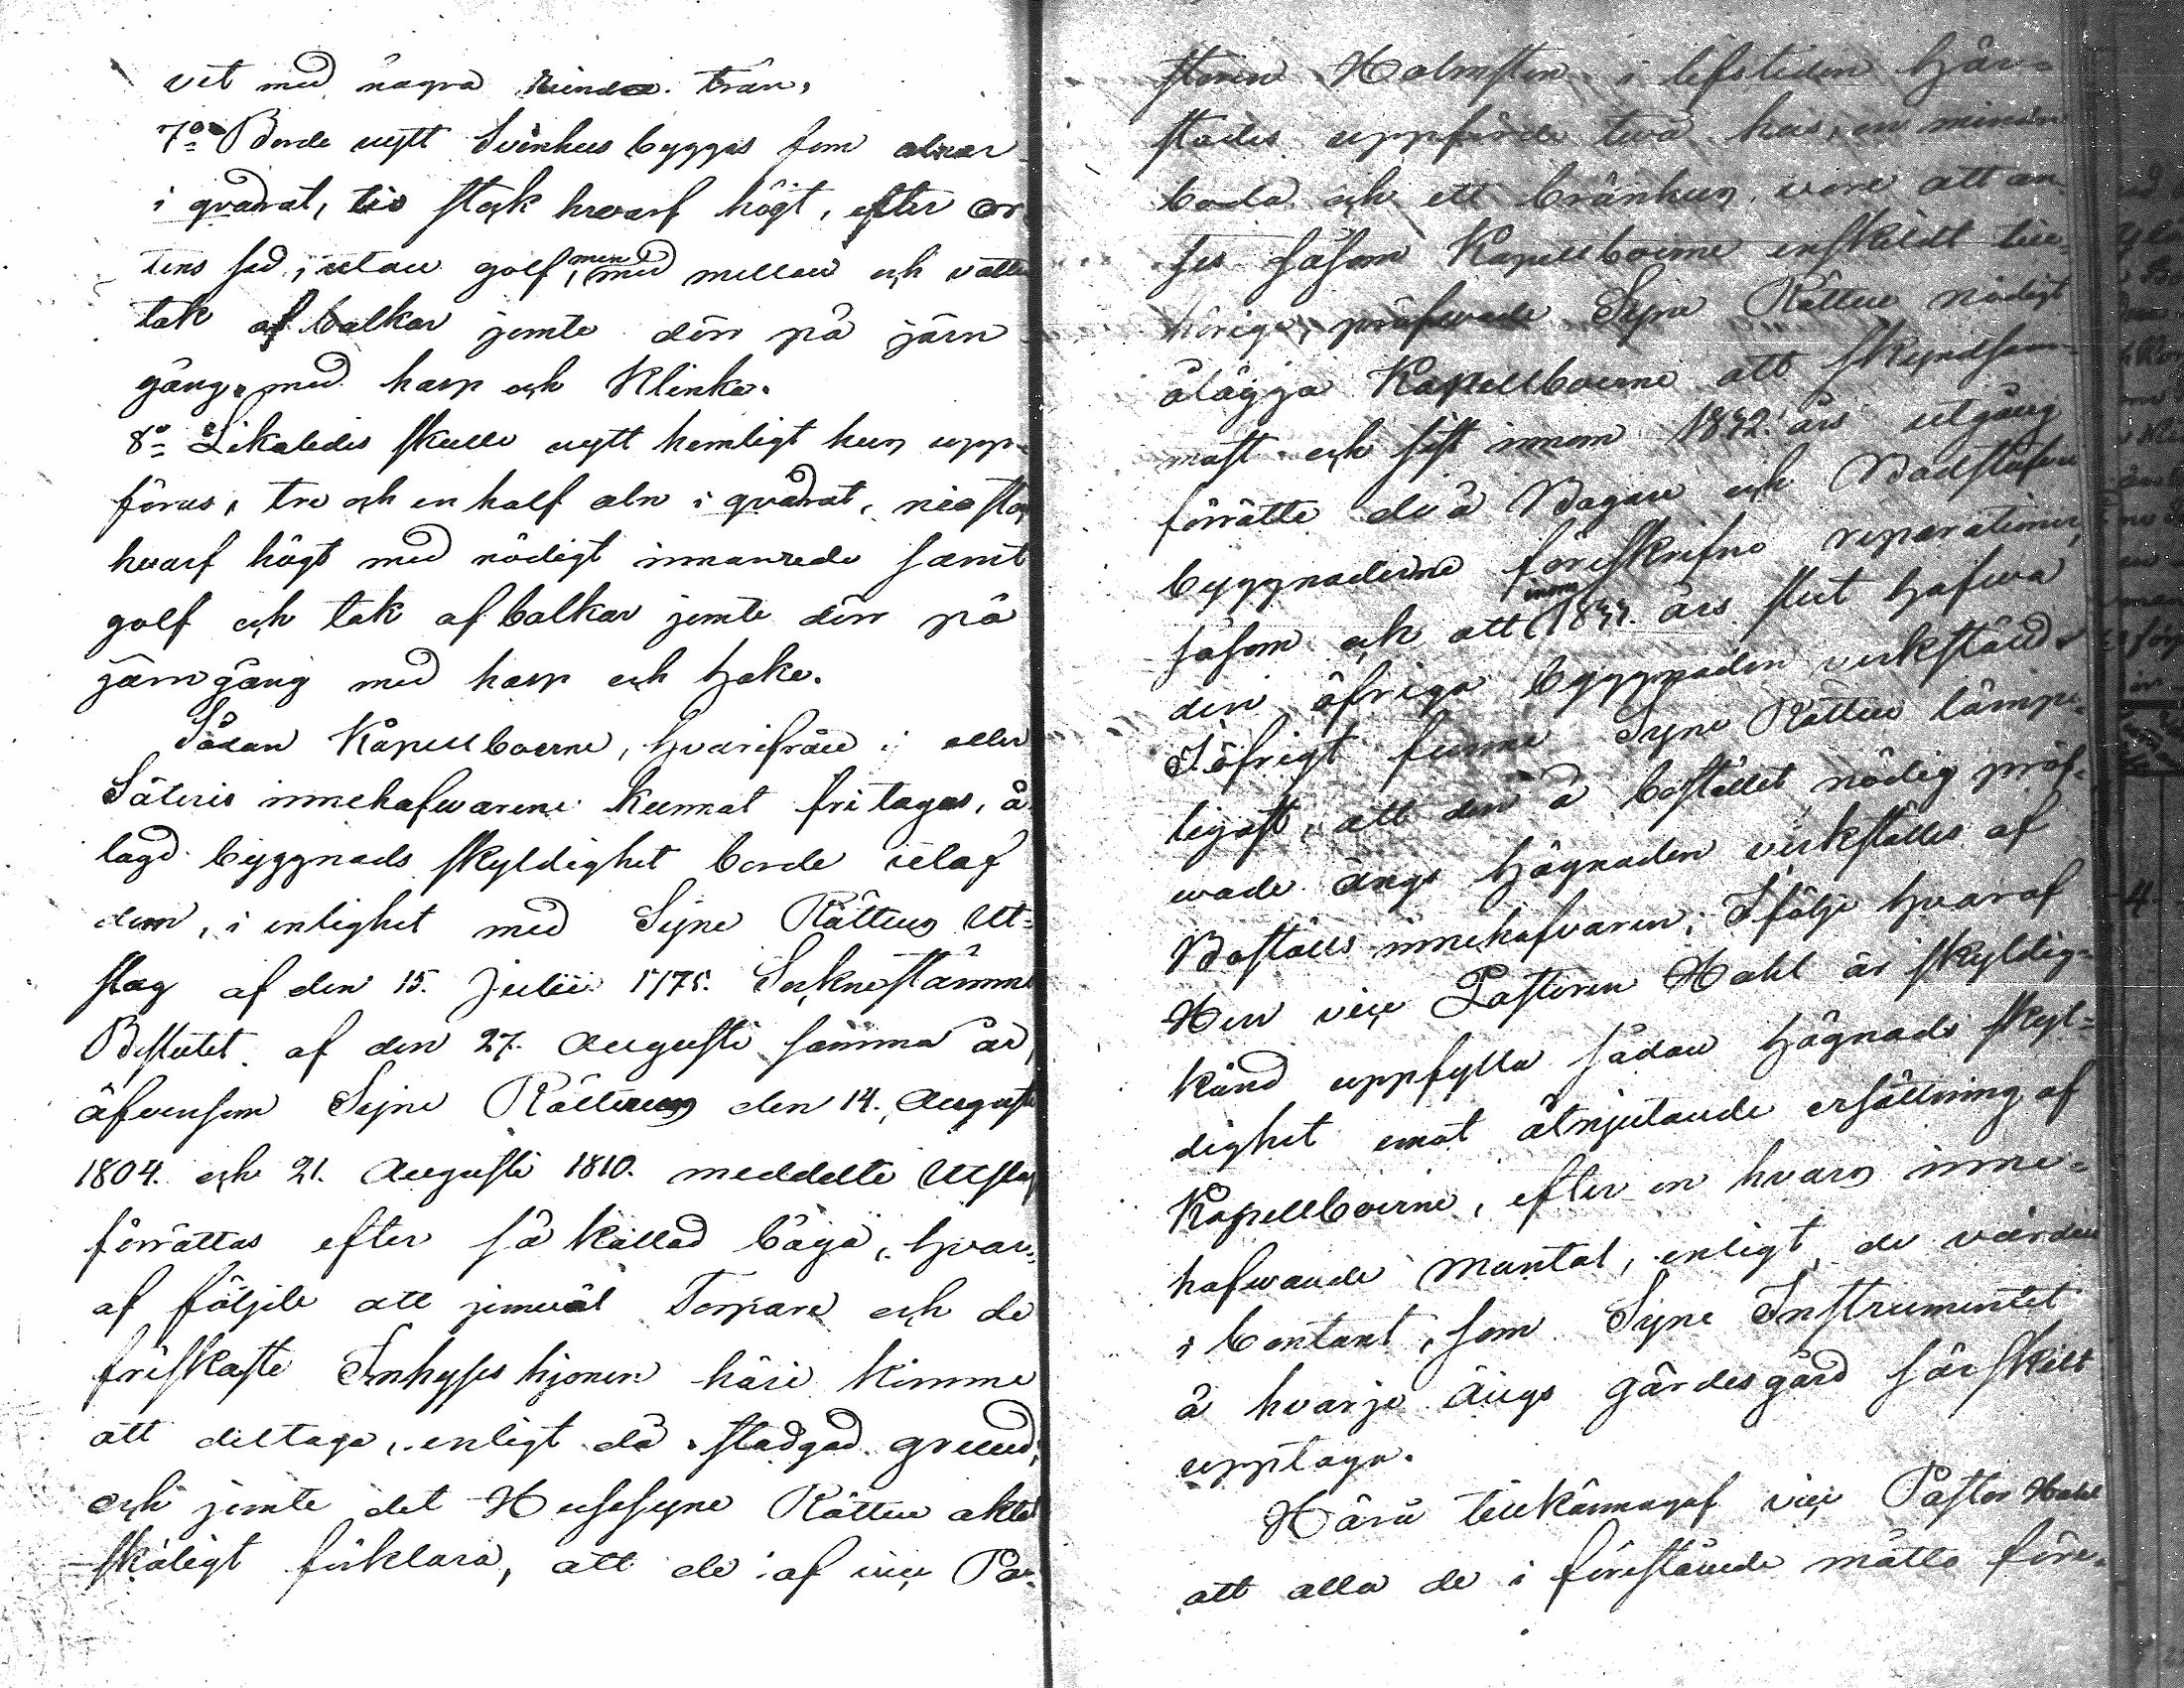 vet med några runda trän,
7o Borde nytt Svinhus byggas fem alnar
i qvadrat, tio stock hwarf högt, efter or-
tens sed, utan golf, men med mellan och vatten
tak af balkar jemte dörr på järn
gång, med hasp och Klinka.
8o Likaledes skulle nytt hemligt hus upp-
föras, tre och en half aln i qvadrat, nio stock
hvarf högt med nödigt innanrede samt
golf och tak af balkar jemte dörr på
järngång med hasp och hake.
Sådan Kapellboerne, hvarifrån ej eller
Säteris innehafwarene kunnat fritagas, å-
lagd byggnads skyldighet borde utaf
dem, i enlighet med Syne Rättens Ut-
slag af den 15. Julii 1775. Socknestämme
Beslutet af den 27. Augusti samma år,
äfvensom Syne Rättens den 14. Augusti
1804. och 21. Augusti 1810. meddelte Utslag
förrättas efter så kallad båga, hvar-
af följde att jemväl Torpare och de
friskaste Inhyses hjonen häri komme
att deltaga, enligt då stadgad grund,
och jemte det Husesyne Rätten aktade
skäligt förklara, att de af vice Pa-
storen Holmsten i lifstiden här-
städes uppförde två hus, en mindre
boda och ett bränhus vore att an-
ses såsom Kapellboerne enskildt till-
hörige, pröfwade Syne Rätten nödigt
ålägga Kapellboerne att skyndsam-
mast och sist innom 1832. års utgång
förrätta de å Bagare och Badstufve
byggnaderne föreskrifne reparationer,
såsom och att innom 1833. års slut hafwa
den öfriga byggnaden verkstäld.
I öfrigt funne Syne Rätten lämpe-
ligast, att den å bostället nödig pröf-
wade ängs hägnaden verkstäldes af
Boställs innehafvaren; I följe hvaraf
Herr vice Pastoren Hahl är skyldig
känd uppfylla sådan hägnads skyl-
dighet emot åtnjutande ersättning af
Kapellboerne, efter en hvars inne-
hafwande mantal, enligt de värden
i Contant, som Syne Instrumentet
å hvarje ängs gärdesgård särskilt
upptager.
Häru tillkännagaf vice Pastor Hahl
att alla de i föreslående måtto före-